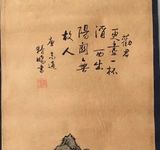 勸君
更盡一杯
酒西出
陽關無
故人
唐
書